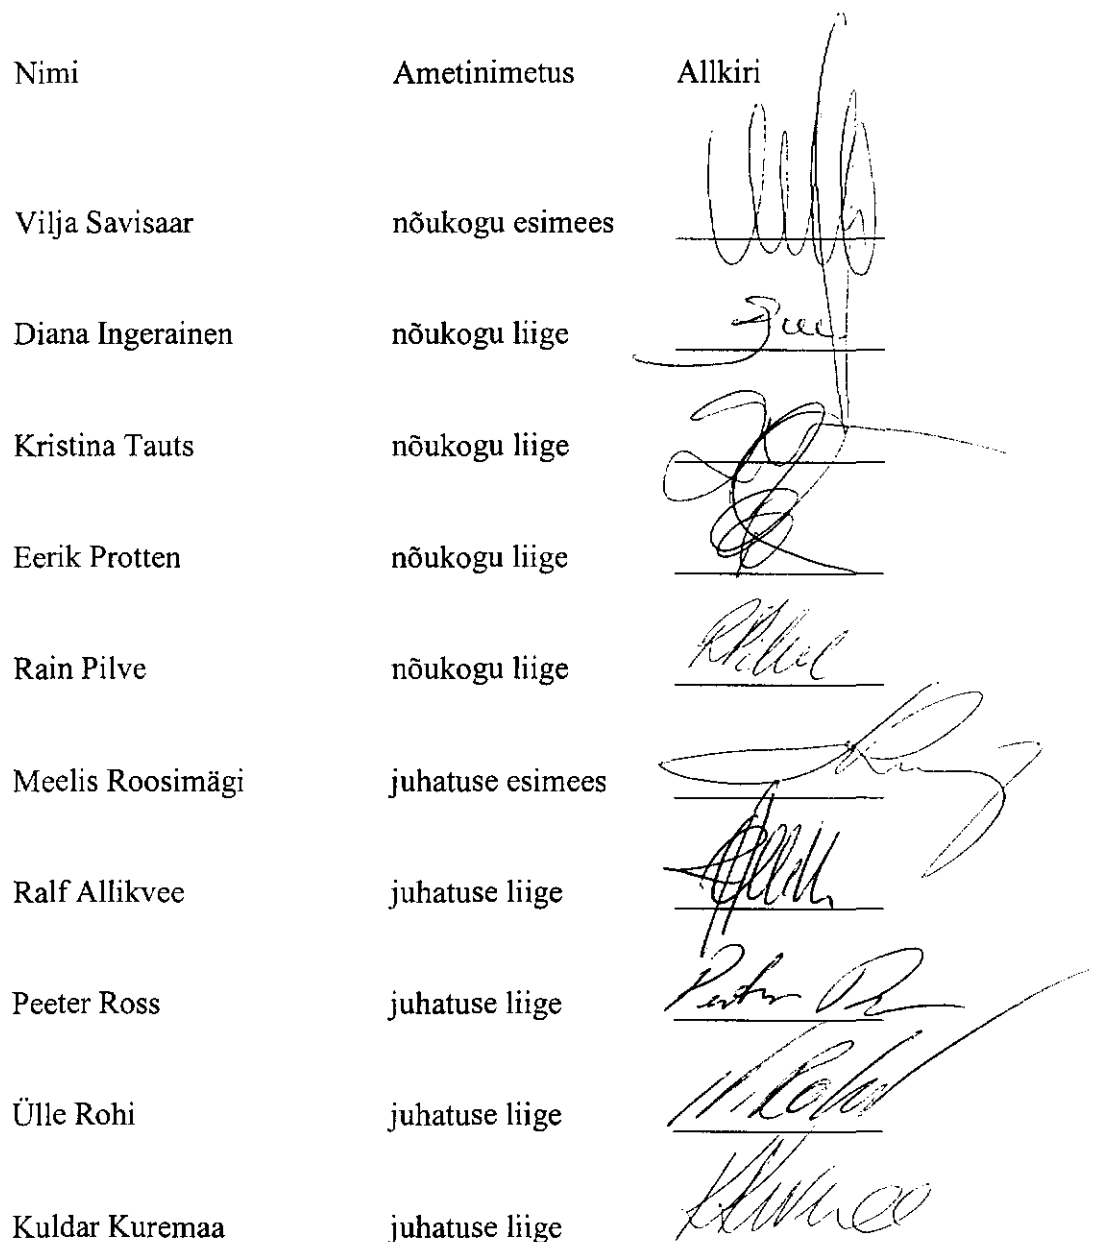 Nimi Ametinimetus Allkiri
Vilja Savisaar nõukogu esimees
Diana Ingerainen nõukogu liige
Kristina Tauts nõukogu liige
Eerik Protten nõukogu liige
Rain Pilve nõukogu liige
Meelis Roosimägi juhatuse esimees
Ralf Allikvee juhatuse liige
Peeter Ross juhatuse liige
Ülle Rohi juhatuse liige
Kuldar Kuremaa juhatuse liige